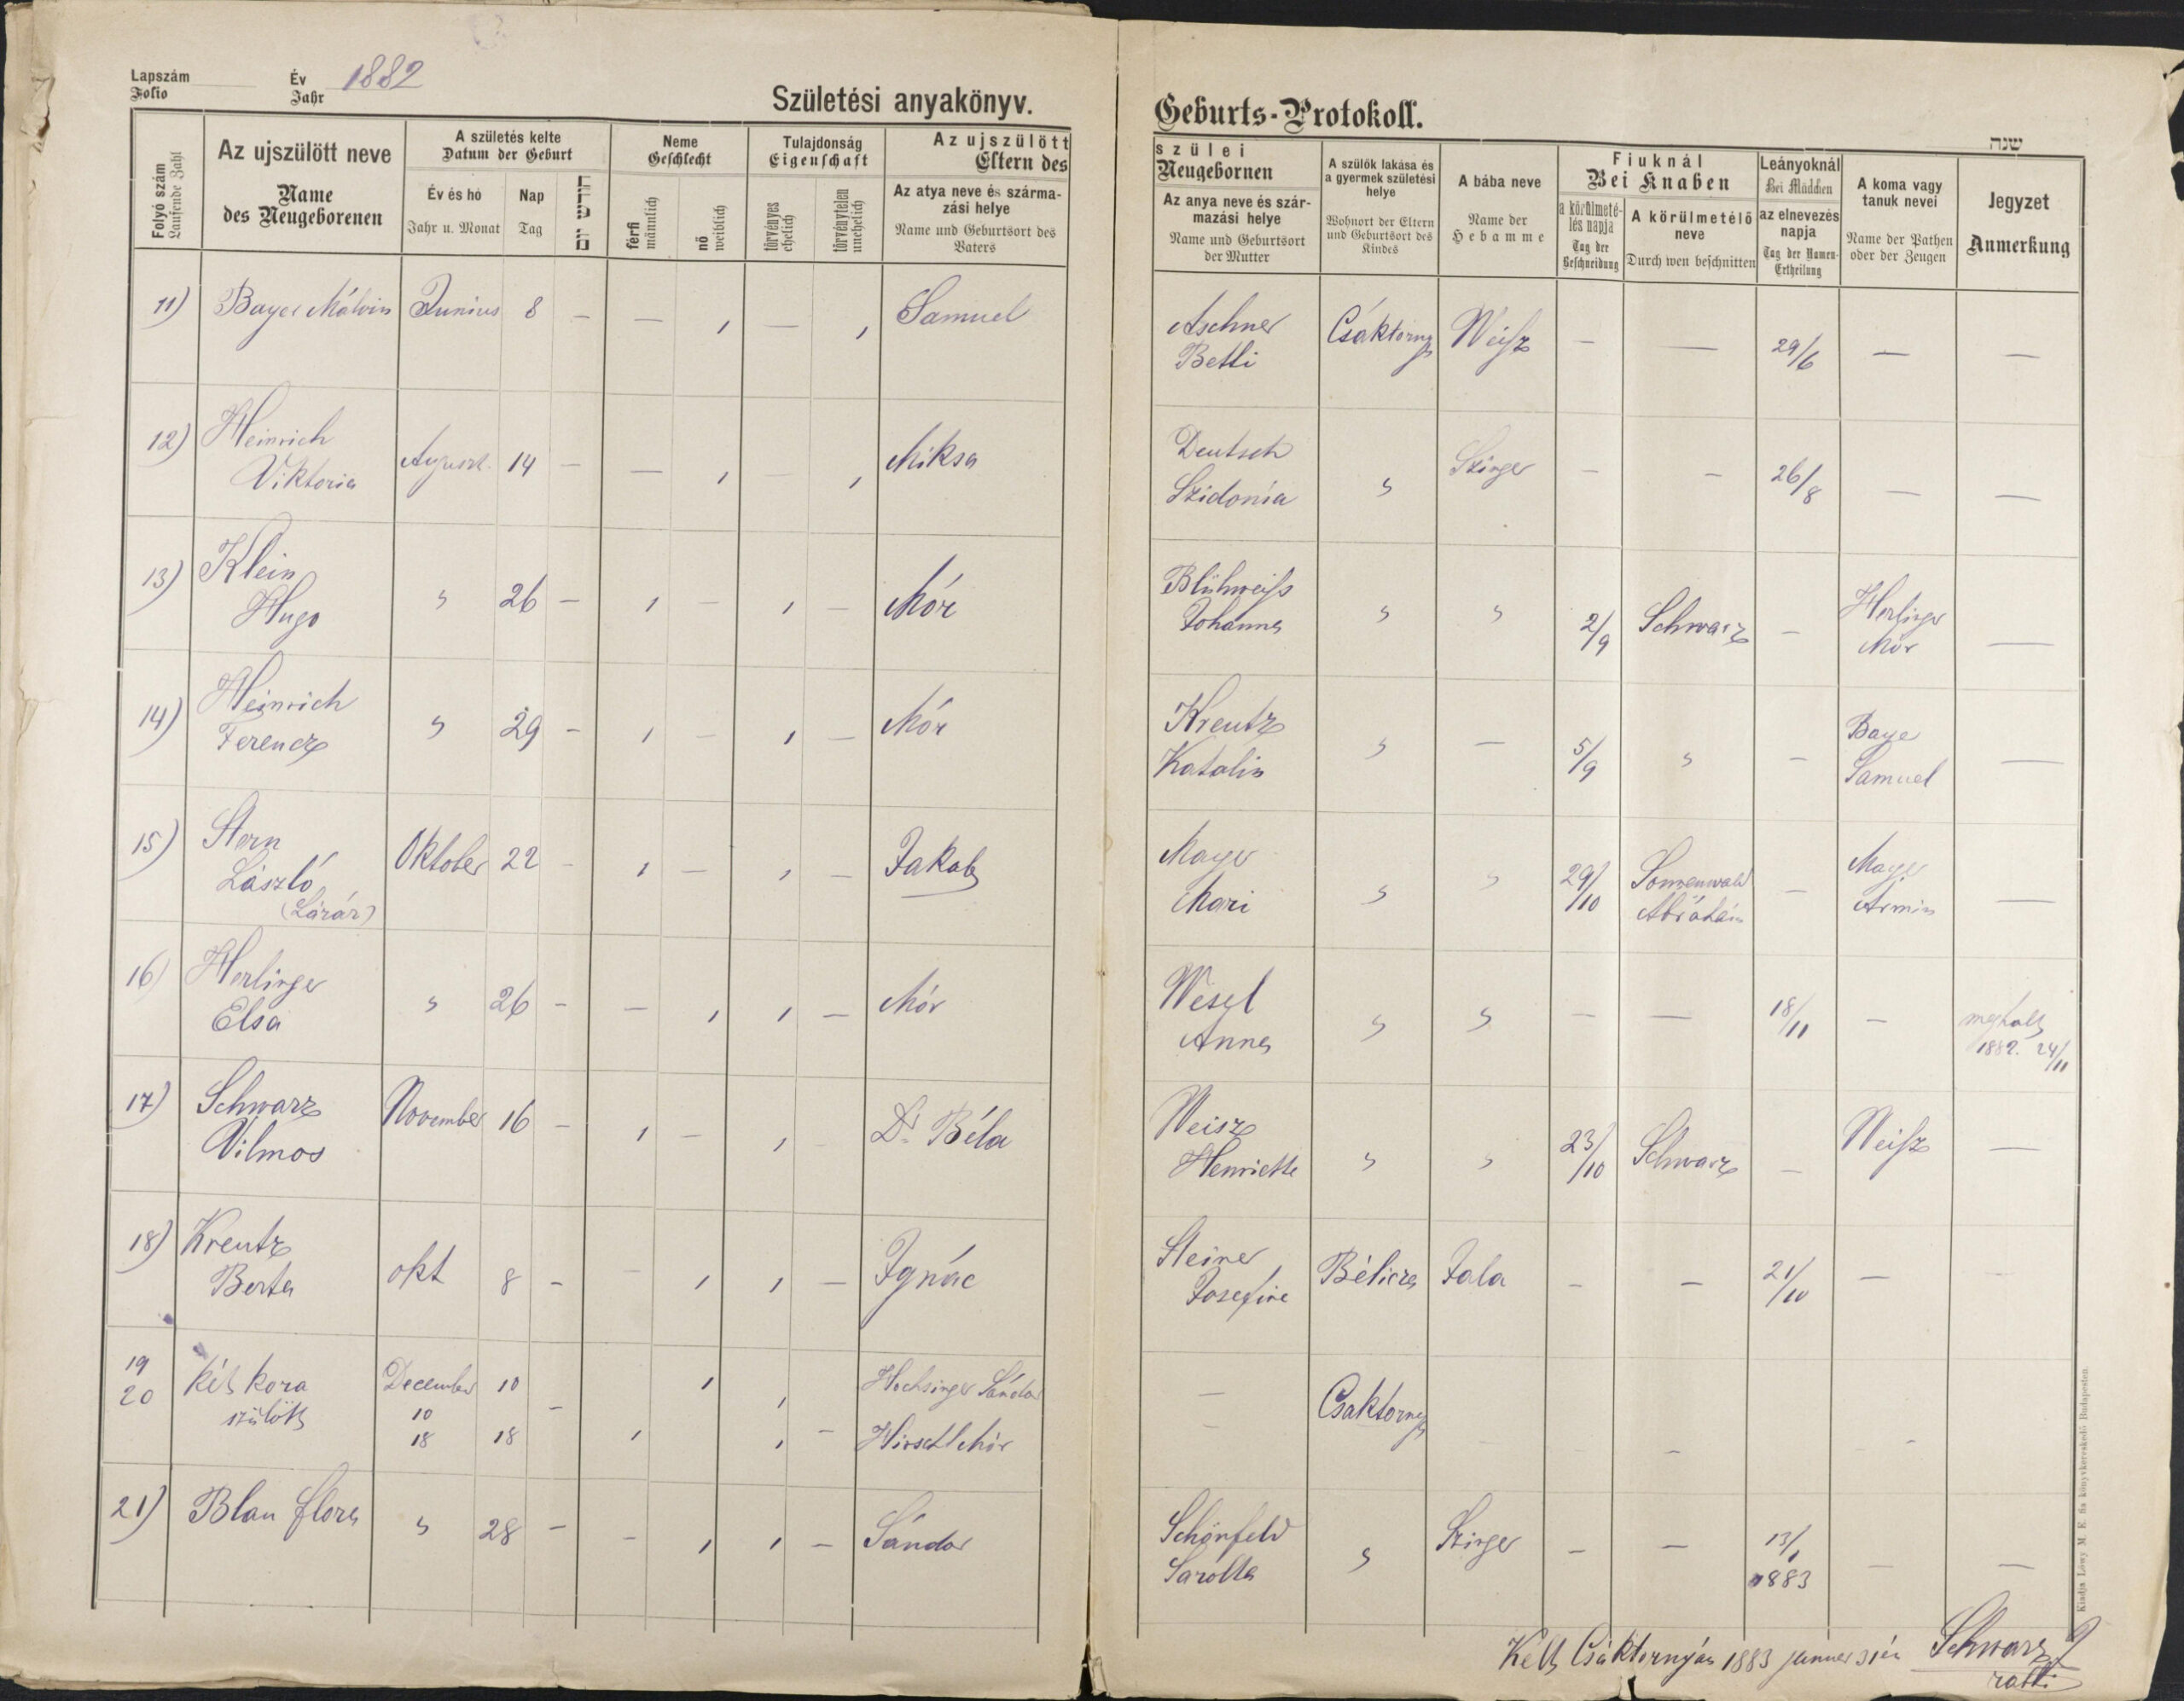 Lapszám
Folio
Év
Jahr
1882
Születési anyakönyv.
Geburts-Protokoll.
שנה
Folyó szám
Laufende Zahl
Az ujszülött neve
Name
des Neugeborenen
A születés kelte
Datum der Geburt
Év és hó
Jahr u. Monat
Nap
Tag
חודש יום
Neme
Geschlecht
férfi
männlich
nő
weiblich
Tulajdonság
Eigenschaft
törvényes
ehelich
törvénytelen
unehelich
Az ujszülött
Eltern des
Az atya neve és szárma-
zási helye
Name und Geburtsort des
Vaters
szülei
Neugebornen
Az anya neve és szár-
mazási helye
Name und Geburtsort
der Mutter
A szülők lakása és
a gyermek születési
helye
Wohnort der Eltern
und Geburtsort des
Kindes
A bába neve
Name der
Hebamme
Fiuknál
Bei Knaben
a körülmeté-
lés napja
Tag der
Beschneidung
A körülmetélő
neve
Durch wen beschnitten
Leányoknál
Bei Mädchen
az elnevezés
napja
Tag der Namen-
Ertheilung
A koma vagy
tanuk nevei
Name der Pathen
oder der Zeugen
Jegyzet
Anmerkung
11) Bayer Málvin Junius 8 — — , — , Samuel
Aschner
Betti
Csáktorny Weisz — — 29/6 — —
12) Heinrich
Viktoria
August. 14 — — , , Miksa
Deutsch
Szidonia
" Szinger — — 26/8 — —
13) Klein
Hugo
" 26 — , — , — Mór
Blühweiss
Johanna
" " 2/9 Schwarz —
Herlinger
Mór
—
14) Heinrich
Ferencz
" 29 — , — , — Mór
Kreutz
Katalin
" — 5/9 " —
Baye
Samuel
—
15) Stern
László
(Lázár)
Oktober 22 — , — , — Jakab
Mayer
Mari
" " 29/10
Sonnenwald
Abrahám
—
Mayer
Armin
—
16) Herlinger
Elsa
" 26 — — , , — Mór
Weszl
Anna
" " — — 18/11 —
meghalt
1882. 24/11
17) Schwarz
Vilmos
November 16 — , — , Dr Béla
Weisz
Henriette
" " 23/10 Schwarz — Weisz —
18) Kreutz
Berta
okt 8 — — , , — Ignác
Steiner
Josefine
Bélicza Zala — — 21/10 —
19
20
két kora
szülött
December 10
10
18 18
— , , Hochsinger Sándor
, , — Hirschl Mór
—
Csaktorny
21) Blau Flora " 28 — — , , — Sándor
Schönfeld
Sarolta
" Szinger — — 13/1
1883
— —
Kelt Csáktornyán 1883 januer 31én Schwarz J
rabbi
Kiadja Löwy M. E. fia könyvkereskedő Budapesten.